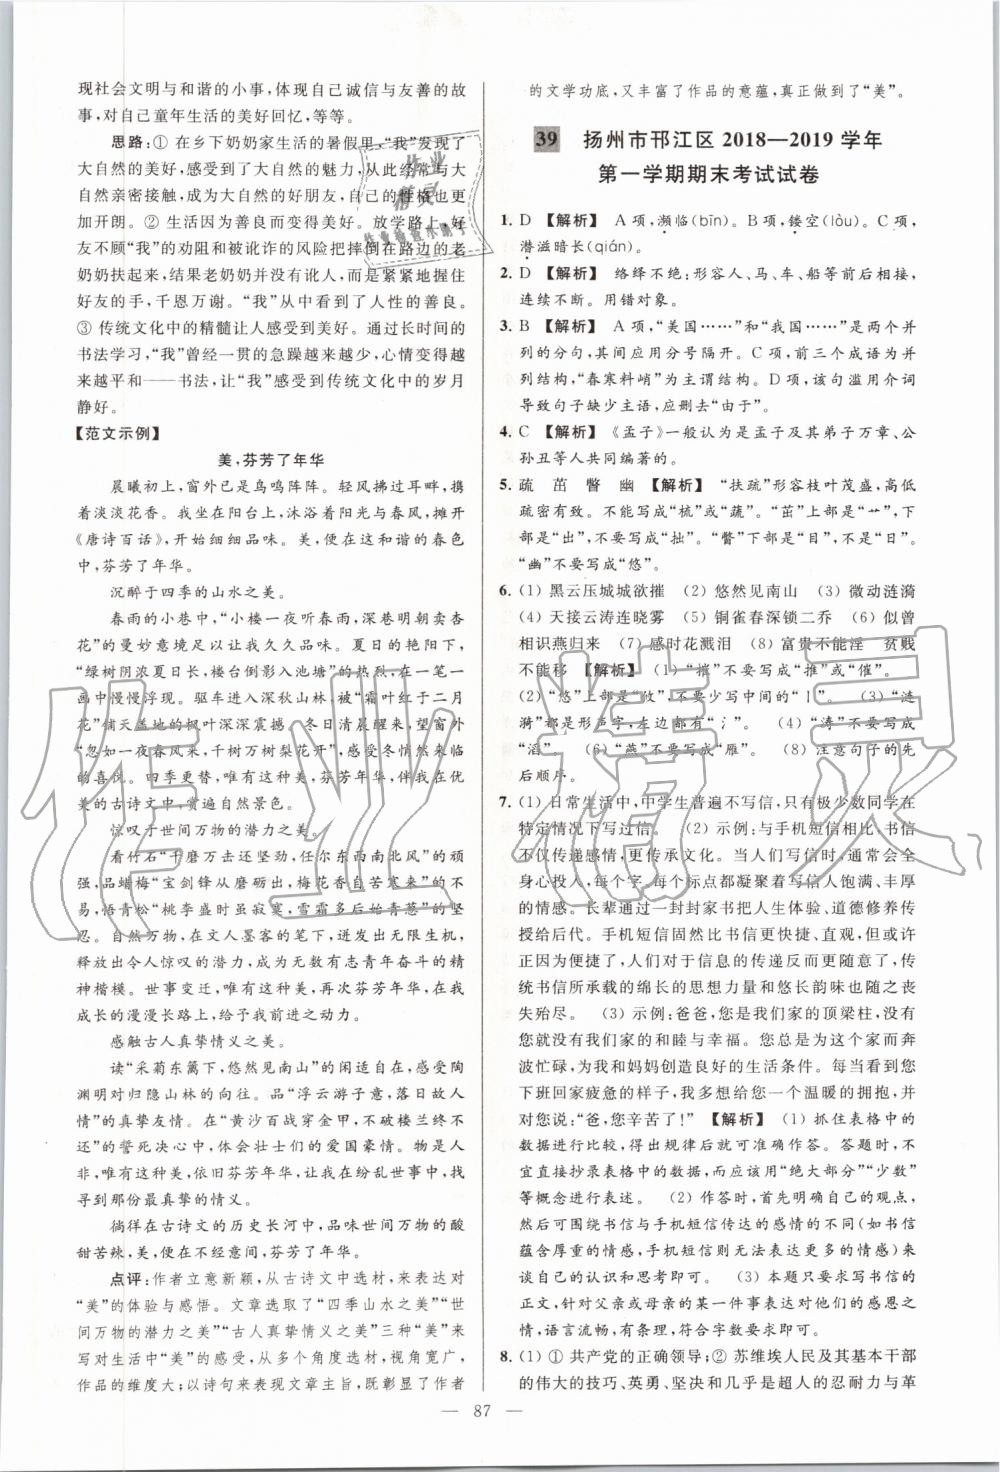 现社会文明与和谐的小事，体现自己诚信与友善的故
事，对自己童年生活的美好回忆，等等。
思路：① 在乡下奶奶家生活的暑假里，“我”发现了
大自然的美好，感受到了大自然的魅力，从此经常与大
自然亲密接触，成为大自然的好朋友，自己的性格也更
加开朗。② 生活因为善良而变得美好。放学路上，好
友不顾“我”的劝阻和被讹诈的风险把摔倒在路边的老
奶奶扶起来，结果老奶奶并没有讹人，而是紧紧地握住
好友的手，千恩万谢。“我”从中看到了人性的善良。
③ 传统文化中的精髓让人感受到美好。通过长时间的
书法学习，“我”曾经一贯的急躁越来越少，心情变得越
来越平和——书法，让“我”感受到传统文化中的岁月
静好。
【范文示例】
美，芬芳了年华
晨曦初上，窗外已是鸟鸣阵阵。轻风拂过鬓畔，携
着淡淡花香。我坐在阳台上，沐浴着阳光与春风，摊开
《唐诗百话》，开始细细品味。美，便在这和谐的春色
中，芬芳了年华。
沉醉于四季的山水之美。
春雨的小巷中，“小楼一夜听春雨，深巷明朝卖杏
花”的曼妙意境足以让我久久品味。夏日的艳阳下，
“绿树阴浓夏日长，楼台倒影入池塘”的热烈，在一笔一
画中慢慢浮现。驱车进入深秋山林，被“霜叶红于二月
花”铺天盖地的枫叶深深震撼。冬日清晨醒来，望窗外
“忽如一夜春风来，千树万树梨花开”，感受冬悄然来临
的喜悦。四季更替，唯有这种美，芬芳年华，伴我在优
美的古诗文中，赏遍自然景色。
惊叹于世间万物的潜力之美。
看竹石“千磨万击还坚劲，任尔东西南北风”的顽
强，品蜡梅“宝剑锋从磨砺出，梅花香自苦寒来”的坚
忍，悟青松“桃李盛时虽寂寞，雪霜多后始青葱”的坚
忍。自然万物，在文人墨客的笔下，迸发出无限生机，
释放出令人惊叹的潜力，成为无数有志青年奋斗的精
神楷模。世事变迁，唯有这种美，再次芬芳年华，在我
成长的漫漫长路上，给予我前进的动力。
感触古人真挚情义之美。
读“采菊东篱下，悠然见南山”的闲适自在，感受陶
渊明对归隐山林的向往。品“浮云游子意，落日故人
情”的真挚友情。在“黄沙百战穿金甲，不破楼兰终不
还”的誓死决心中，体会壮士们的爱国豪情。物是人
非，唯有这种美，依旧芬芳年华，让我在纷乱世事中，找
寻到那份最真挚的情义。
徜徉在古诗文的历史长河中，品味世间万物的酸
甜苦辣，美，便在不经意间，芬芳了年华。
点评：作者立意新颖，从古诗文中选材，来表达对
“美”的体验与感悟。文章选取了“四季山水之美”“世
间万物的潜力之美”“古人真挚情义之美”三种“美”来
写对生活中“美”的感受，从多个角度选材，视角宽广，
作品的维度大；以诗句来表现文章主旨，既彰显了作者
的文学功底，又丰富了作品的意蕴，真正做到了“美”。
39 扬州市邗江区 2018—2019 学年
第一学期期末考试试卷
1. D 【解析】 A 项，濒临(bīn)。B 项，镂空(lòu)。C 项，
潜滋暗长(qián)。
2. D 【解析】 络绎不绝：形容人、马、车、船等前后相接，
连续不断。用错对象。
3. B 【解析】 A 项，“美国……”和“我国……”是两个并
列的分句，其间应用分号隔开。C 项，前三个成语为并
列结构，“春寒料峭”为主谓结构。D 项，该句滥用介词
导致句子缺少主语，应删去“由于”。
4. C 【解析】《孟子》一般认为是孟子及其弟子万章、公
孙丑等人共同编著的。
5. 疏 茁 瞥 幽 【解析】 “扶疏”形容枝叶茂盛，高低
疏密有致。不能写成“梳”或“蔬”。“茁”上部是“艹”，下
部是“出”，不要写成“拙”。“瞥”下部是“目”，不是“日”。
“幽”不要写成“悠”。
6. (1) 黑云压城城欲摧 (2) 悠然见南山 (3) 微动涟漪
(4) 天接云涛连晓雾 (5) 铜雀春深锁二乔 (6) 似曾
相识燕归来 (7) 感时花溅泪 (8) 富贵不能淫 贫贱
不能移 【解析】 (1) “摧”不要写成“推”或“催”。
(2) “悠”上部是“攸”，不要少写中间的“丨”。 (3) “涟
漪”都是形声字，左边都有“氵”。 (4) “涛”不要写成
“滔”。 (6) “燕”不要写成“雁”。 (8) 注意句子的先
后顺序。
7. (1) 日常生活中，中学生普遍不写信，只有极少数同学在
特定情况下写过信。 (2) 示例：与手机短信相比，书信
不仅传递感情，更传承文化。当人们写信时，通常会全
身心投入，每个字、每个标点都凝聚着写信人饱满、丰厚
的情感。长辈通过一封封家书把人生体验、道德修养传
授给后代。手机短信固然比书信更快捷、直观，但或许
正因为便捷了，人们对于信息的传递反而更随意了，传
统书信所承载的绵长的思想情感和悠长韵味也丧
失殆尽。 (3) 示例：爸爸，您是我们家的顶梁柱，没有
您就没有我们家的和睦与幸福。您总是为这个家而奔
波忙碌，为我和妈妈创造良好的生活条件。每当看到您
下班回家疲惫的样子，我多想给您一个温暖的拥抱，并
对您说：“爸，您辛苦了！” 【解析】 (1) 抓住表格中的
数据进行比较，得出规律后就可准确作答。答题时，不
宜直接抄录表格中的数据，而应该用“绝大部分”“少数”
等概念进行表述。 (2) 作答时，首先明确自己的观点，
然后可围绕书信与手机短信传达的感情的不同(如书信
蕴含深厚的感情，手机短信无法表达更多的感情)来
谈自己的认识和思考即可。 (3) 本题只要求写书信的
正文，针对父亲或母亲的某一件事表达对他们的感恩之
情，语言流畅，有条理，符合字数要求即可。
8. (1) ① 共产党的正确领导；② 苏维埃人民及其基本干部
的伟大的技巧、英勇、坚决和几乎是超人的忍耐力与革
— 87 —
作业精灵